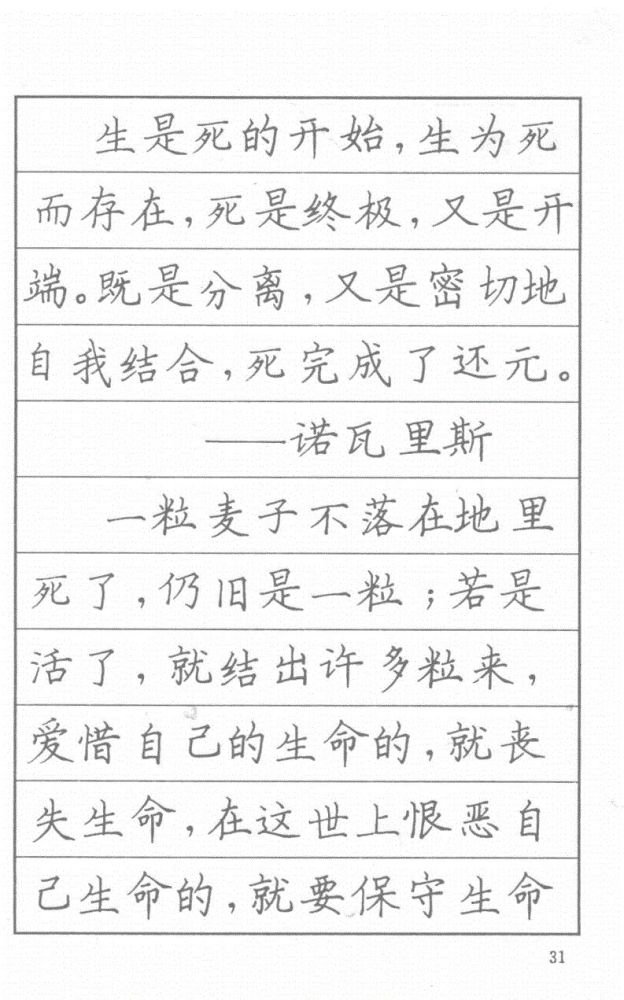 生是死的开始,生为死
而存在,死是终极,又是开
端。既是分离,又是密切地
自我结合,死完成了还元。
——诺瓦里斯
一粒麦子不落在地里
死了,仍旧是一粒;若是
活了,就结出许多粒来,
爱惜自己的生命的,就丧
失生命,在这世上恨恶自
己生命的,就要保守生命
31